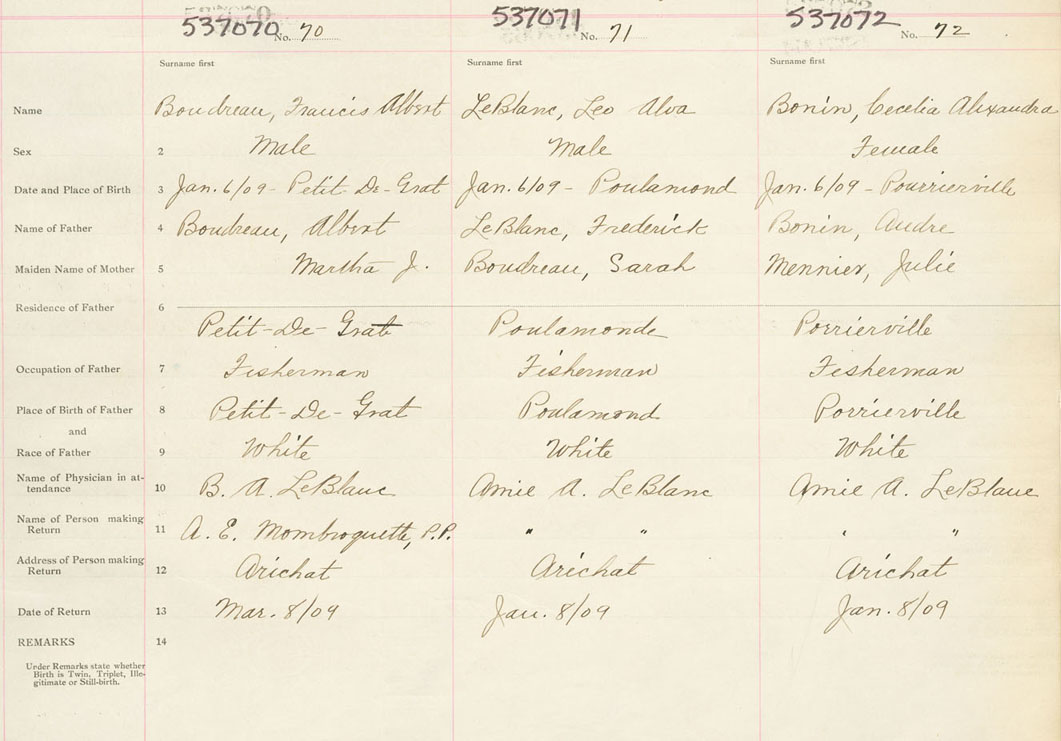 537070 No. 70 537071 No. 71 537072 No. 72
Surname first Surname first Surname first
Name Boudreau, Francis Albert LeBlanc, Leo Alva Bonin, Cecelia Alexandra
Sex 2 Male Male Female
Date and Place of Birth 3 Jan. 6/09 - Petit-De-Grat Jan. 6/09 - Poulamond Jan. 6/09 - Pourrierville
Name of Father 4 Boudreau, Albert LeBlanc, Frederick Bonin, Andre
Maiden Name of Mother 5 Martha J. Boudreau, Sarah Mennier, Julie
Residence of Father 6
Petit-De-Grat Poulamonde Porrierville
Occupation of Father 7 Fisherman Fisherman Fisherman
Place of Birth of Father 8 Petit-De-Grat Poulamond Porrierville
and
Race of Father 9 White White White
Name of Physician in at-
tendance 10 B. A. LeBlanc Amie A. LeBlanc Amie A. LeBlanc
Name of Person making
Return 11 A. E. Mombroquette, P.P. " " " "
Address of Person making
Return 12 Arichat Arichat Arichat
Date of Return 13 Mar. 8/09 Jan. 8/09 Jan. 8/09
REMARKS 14
Under Remarks state whether
Birth is Twin, Triplet, Ille-
gitimate or Still-birth.